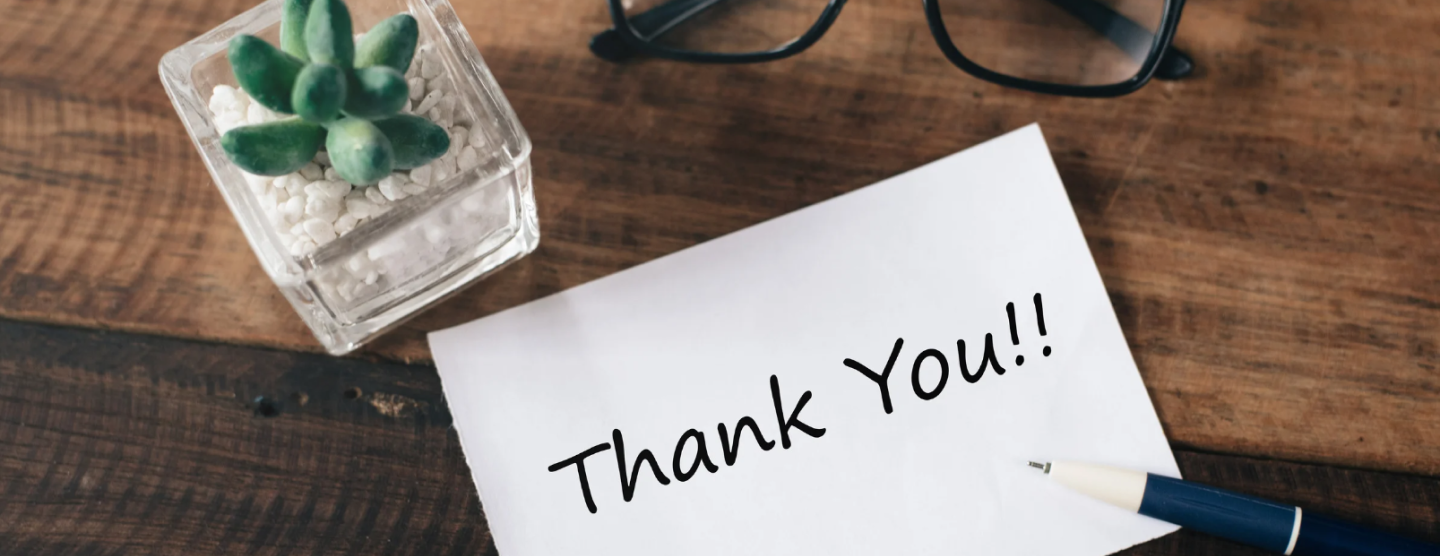 Thank You!!